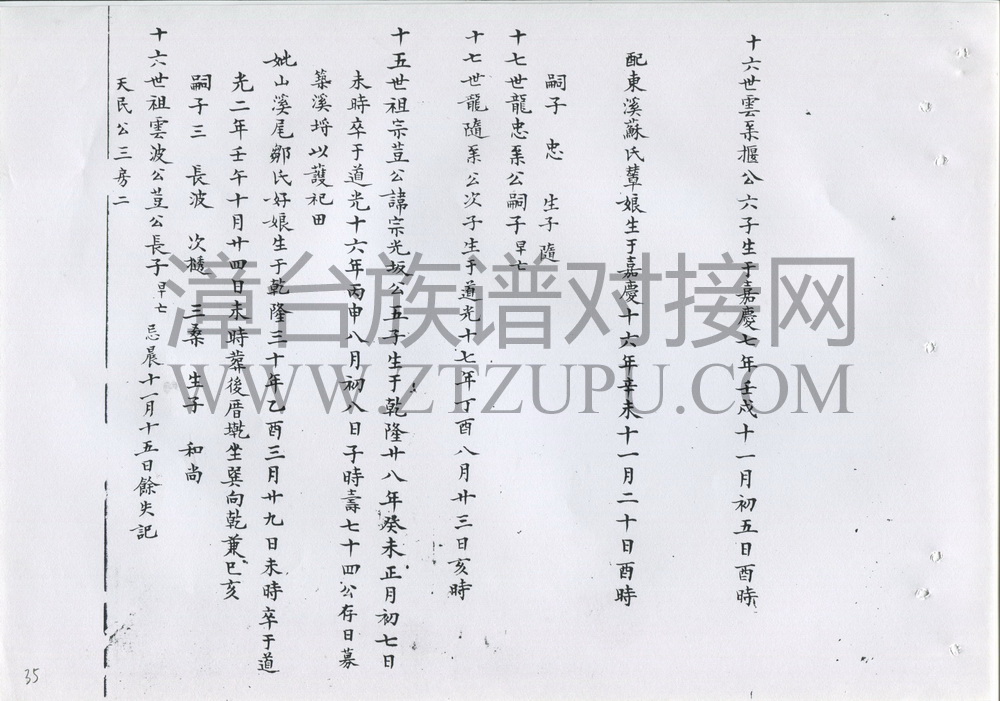 十六世雲桑偓公六子生于嘉慶七年壬戍十一月初五日酉時
配東溪蘇氏輦娘生于嘉慶十六年辛未十一月二十日酉時
嗣子 忠 生子 隨
十七世龍忠桑公嗣子早亡
十七世龍隨桑公次子生于道光十七年丁酉八月廿三日亥時
十五世祖宗荳公諱宗光坂公五子生于乾隆廿八年癸未正月初七日
未時卒于道光十六年丙申八月初八日子時壽七十四公存日募
築溪埓以護祀田
妣山溪尾鄒氏好娘生于乾隆三十年乙酉三月廿九日未時卒于道
光二年壬午十月廿四日未時葬後厝墘坐巽向乾兼巳亥
嗣子三 長波 次槌 三桑 生子 和尚
十六世祖雲波公荳公長子早亡 忌晨十一月十五日餘失記
天民公三房二
35
漳台族谱对接网
WWW.ZTZUPU.COM